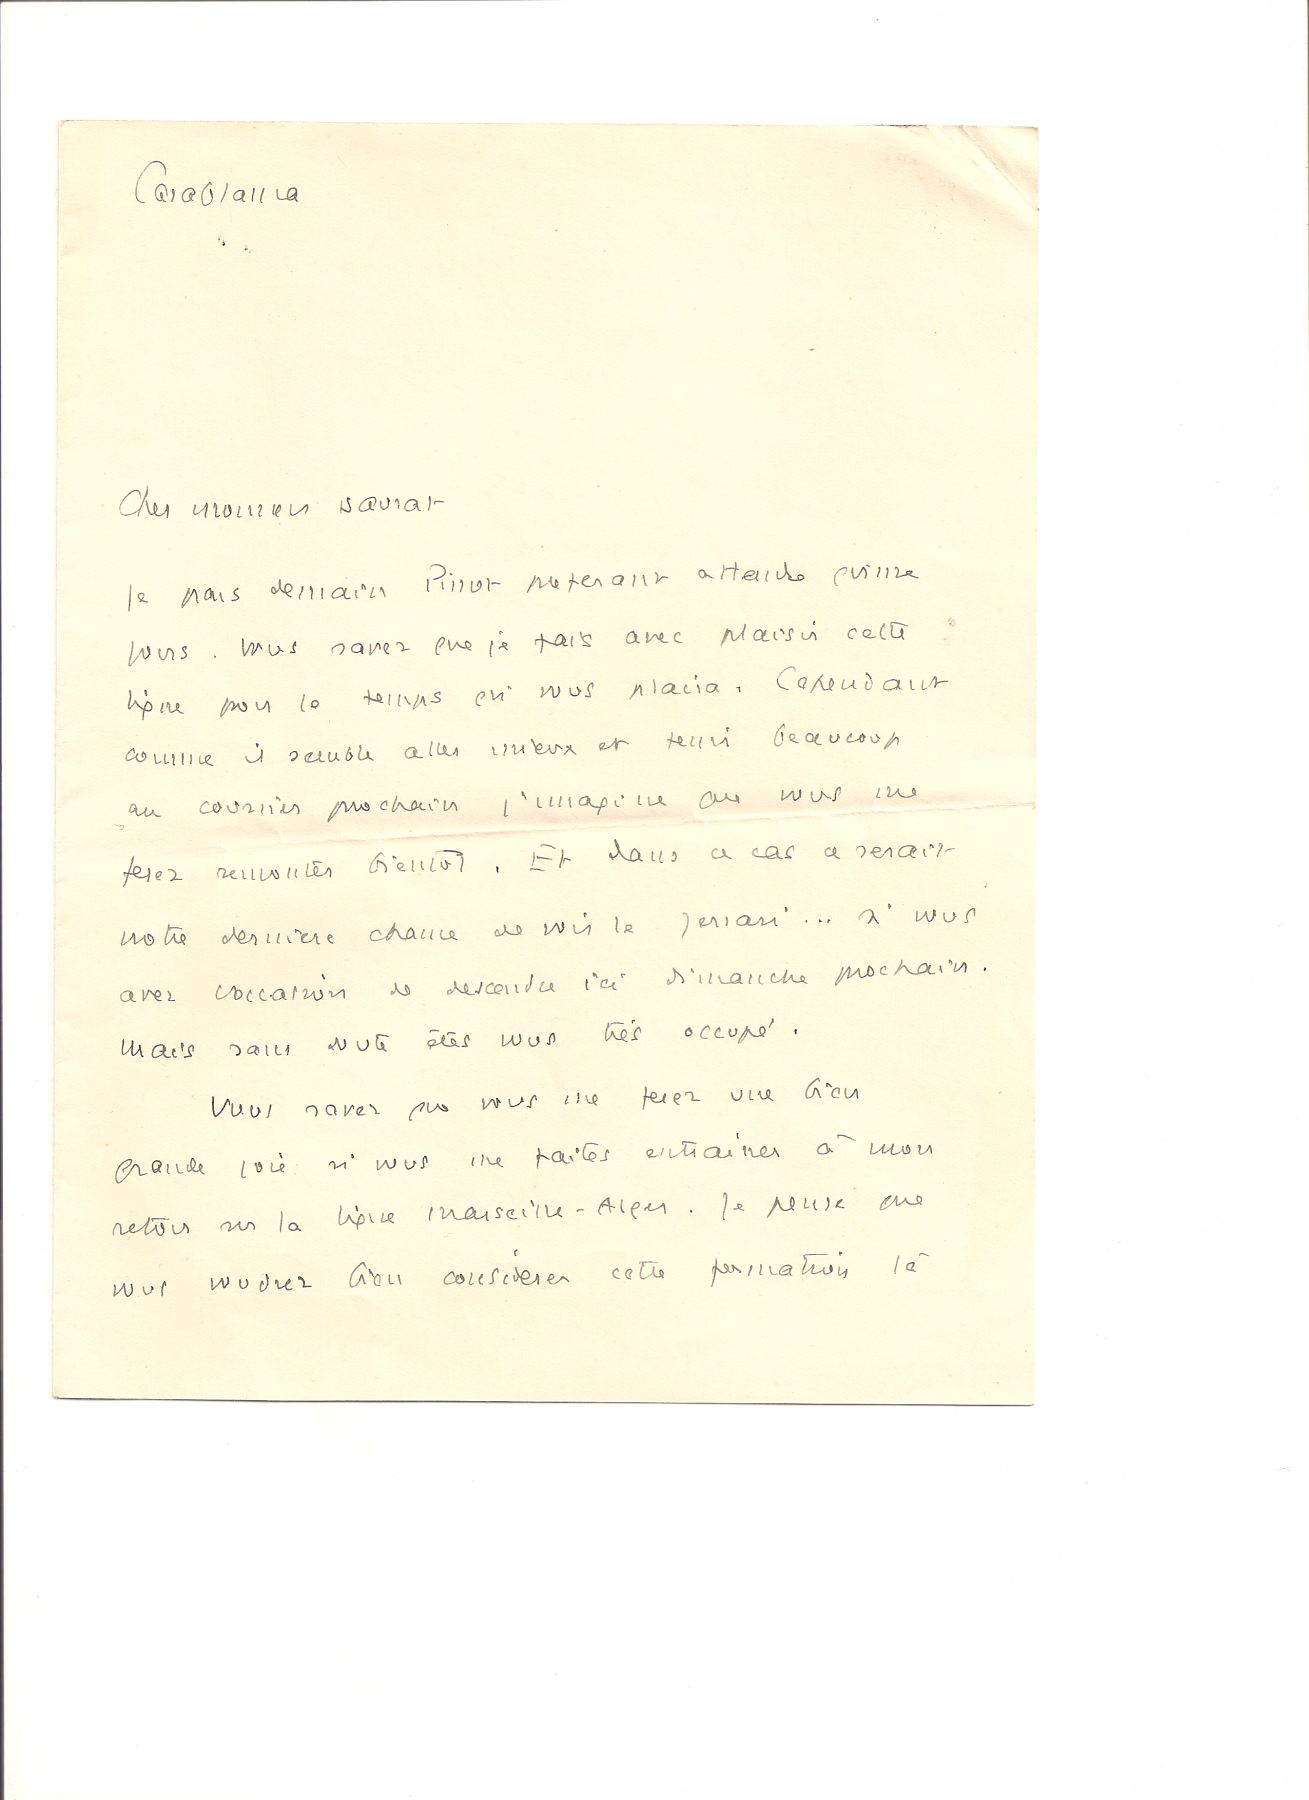 Casablanca
Cher monsieur Daurat
Je pars demain Pivot préférant attendre quinze
jours. Vous savez que je fais avec plaisir cette
ligne pour le temps qui vous plaira. Cependant
comme il semble aller mieux et tenir beaucoup
au courrier prochain j'imagine que vous me
ferez remonter bientôt. Et dans ce cas ce serait
notre dernière chance de voir le ... si vous
avez l'occasion de descendre ici dimanche prochain.
Mais sans doute êtes vous très occupé.
Vous savez que vous me ferez une bien
grande joie si vous me faites entraîner à mon
retour sur la ligne Marseille-Alger. Je pense que
vous voudrez bien considérer cette formation là